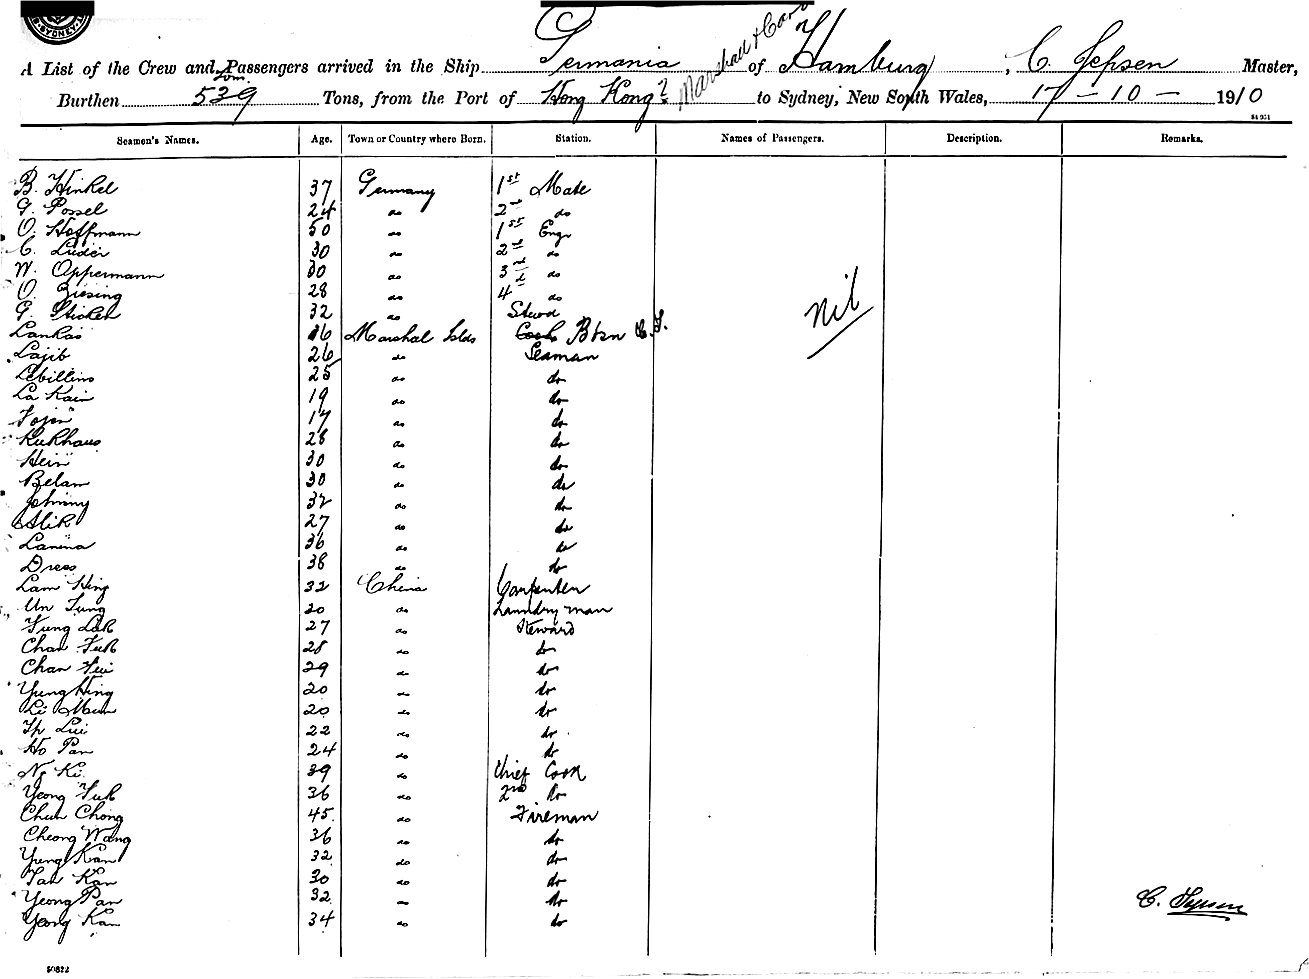 SYDNEY
A List of the Crew and Passengers arrived in the Ship Germania of Hamburg, C. Jepsen Master,
Marshall & Caro
Burthen 539 Tons, from the Port of Hong Kong? to Sydney, New South Wales, 17 - 10 - 1910
Seamen's Names. Age. Town or Country where Born. Station. Names of Passengers. Description. Remarks.
B. Hinkel 37 Germany 1st Mate
G. Possel 24 do 2nd do
O. Hoffmann 50 do 1st Engr
C. Lüder 30 do 2nd do
W. Oppermann 30 do 3rd do
O. Ziesing 28 do 4th do
G. 32 do Stewd
Nil
Lankai 36 Marshal Islds Cook Btsn
Lajib 26 do Seaman
Lebillino 25 do do
La Kain 19 do do
Tojin 17 do do
Kukhaus 28 do do
Hein 30 do do
Belam 30 do do
Johnny 32 do do
Alik 27 do do
Lanina 36 do do
Drees 38 do do
Lam Hing 32 China Carpenter
Un Tung 20 do Laundryman
Fung Lok 27 do Steward
Chan Fuk 28 do do
Chan Fui 29 do do
Yung Hing 20 do do
Li Mun 20 do do
Ip Lui 22 do do
Ho Pan 24 do do
Ng Ki 39 do Chief Cook
Yeong Fuk 36 do 2nd do
Chun Chong 45 do Fireman
Cheong Wang 36 do do
Yung Kan 32 do do
Tan Kan 30 do do
Yeong Pan 32 do do
C. Jepsen
Yeong Kan 34 do do